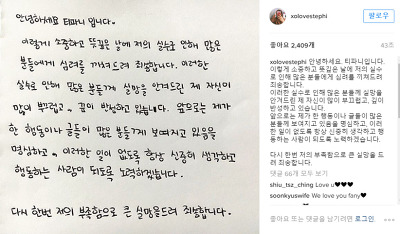 안녕하세요 티파니 입니다.
이렇게 소중하고 뜻깊은 날에 저의 실수로 인해 많은
분들에게 심려를 끼쳐드려 죄송합니다. 이러한
실수로 인해 많은 분들께 실망을 안겨드린 제 자신이
많이 부끄럽고, 깊이 반성하고 있습니다. 앞으로는 제가
한 행동이나 글들이 많은 분들께 보여지고 있음을
명심하고, 이러한 일이 없도록 항상 신중히 생각하고
행동하는 사람이 되도록 노력하겠습니다.
다시 한번 저의 부족함으로 큰 실망을드려 죄송합니다.
xolovestephi
팔로우
좋아요 2,409개
43초
xolovestephi 안녕하세요, 티파니입니다.
이렇게 소중하고 뜻깊은 날에 저의 실수
로 인해 많은 분들에게 심려를 끼쳐드려
죄송합니다.
이러한 실수로 인해 많은 분들께 실망을
안겨드린 제 자신이 많이 부끄럽고, 깊이
반성하고 있습니다.
앞으로는 제가 한 행동이나 글들이 많은
분들께 보여지고 있음을 명심하고, 이러
한 일이 없도록 항상 신중히 생각하고 행
동하는 사람이 되도록 노력하겠습니다.
다시 한번 저의 부족함으로 큰 실망을 드
려 죄송합니다.
댓글 66개 모두 보기
shiu_tsz_ching Love u♥♥♥
soonkyuswife We love you fany♥
좋아요 또는 댓글을 남기려면 로그인.